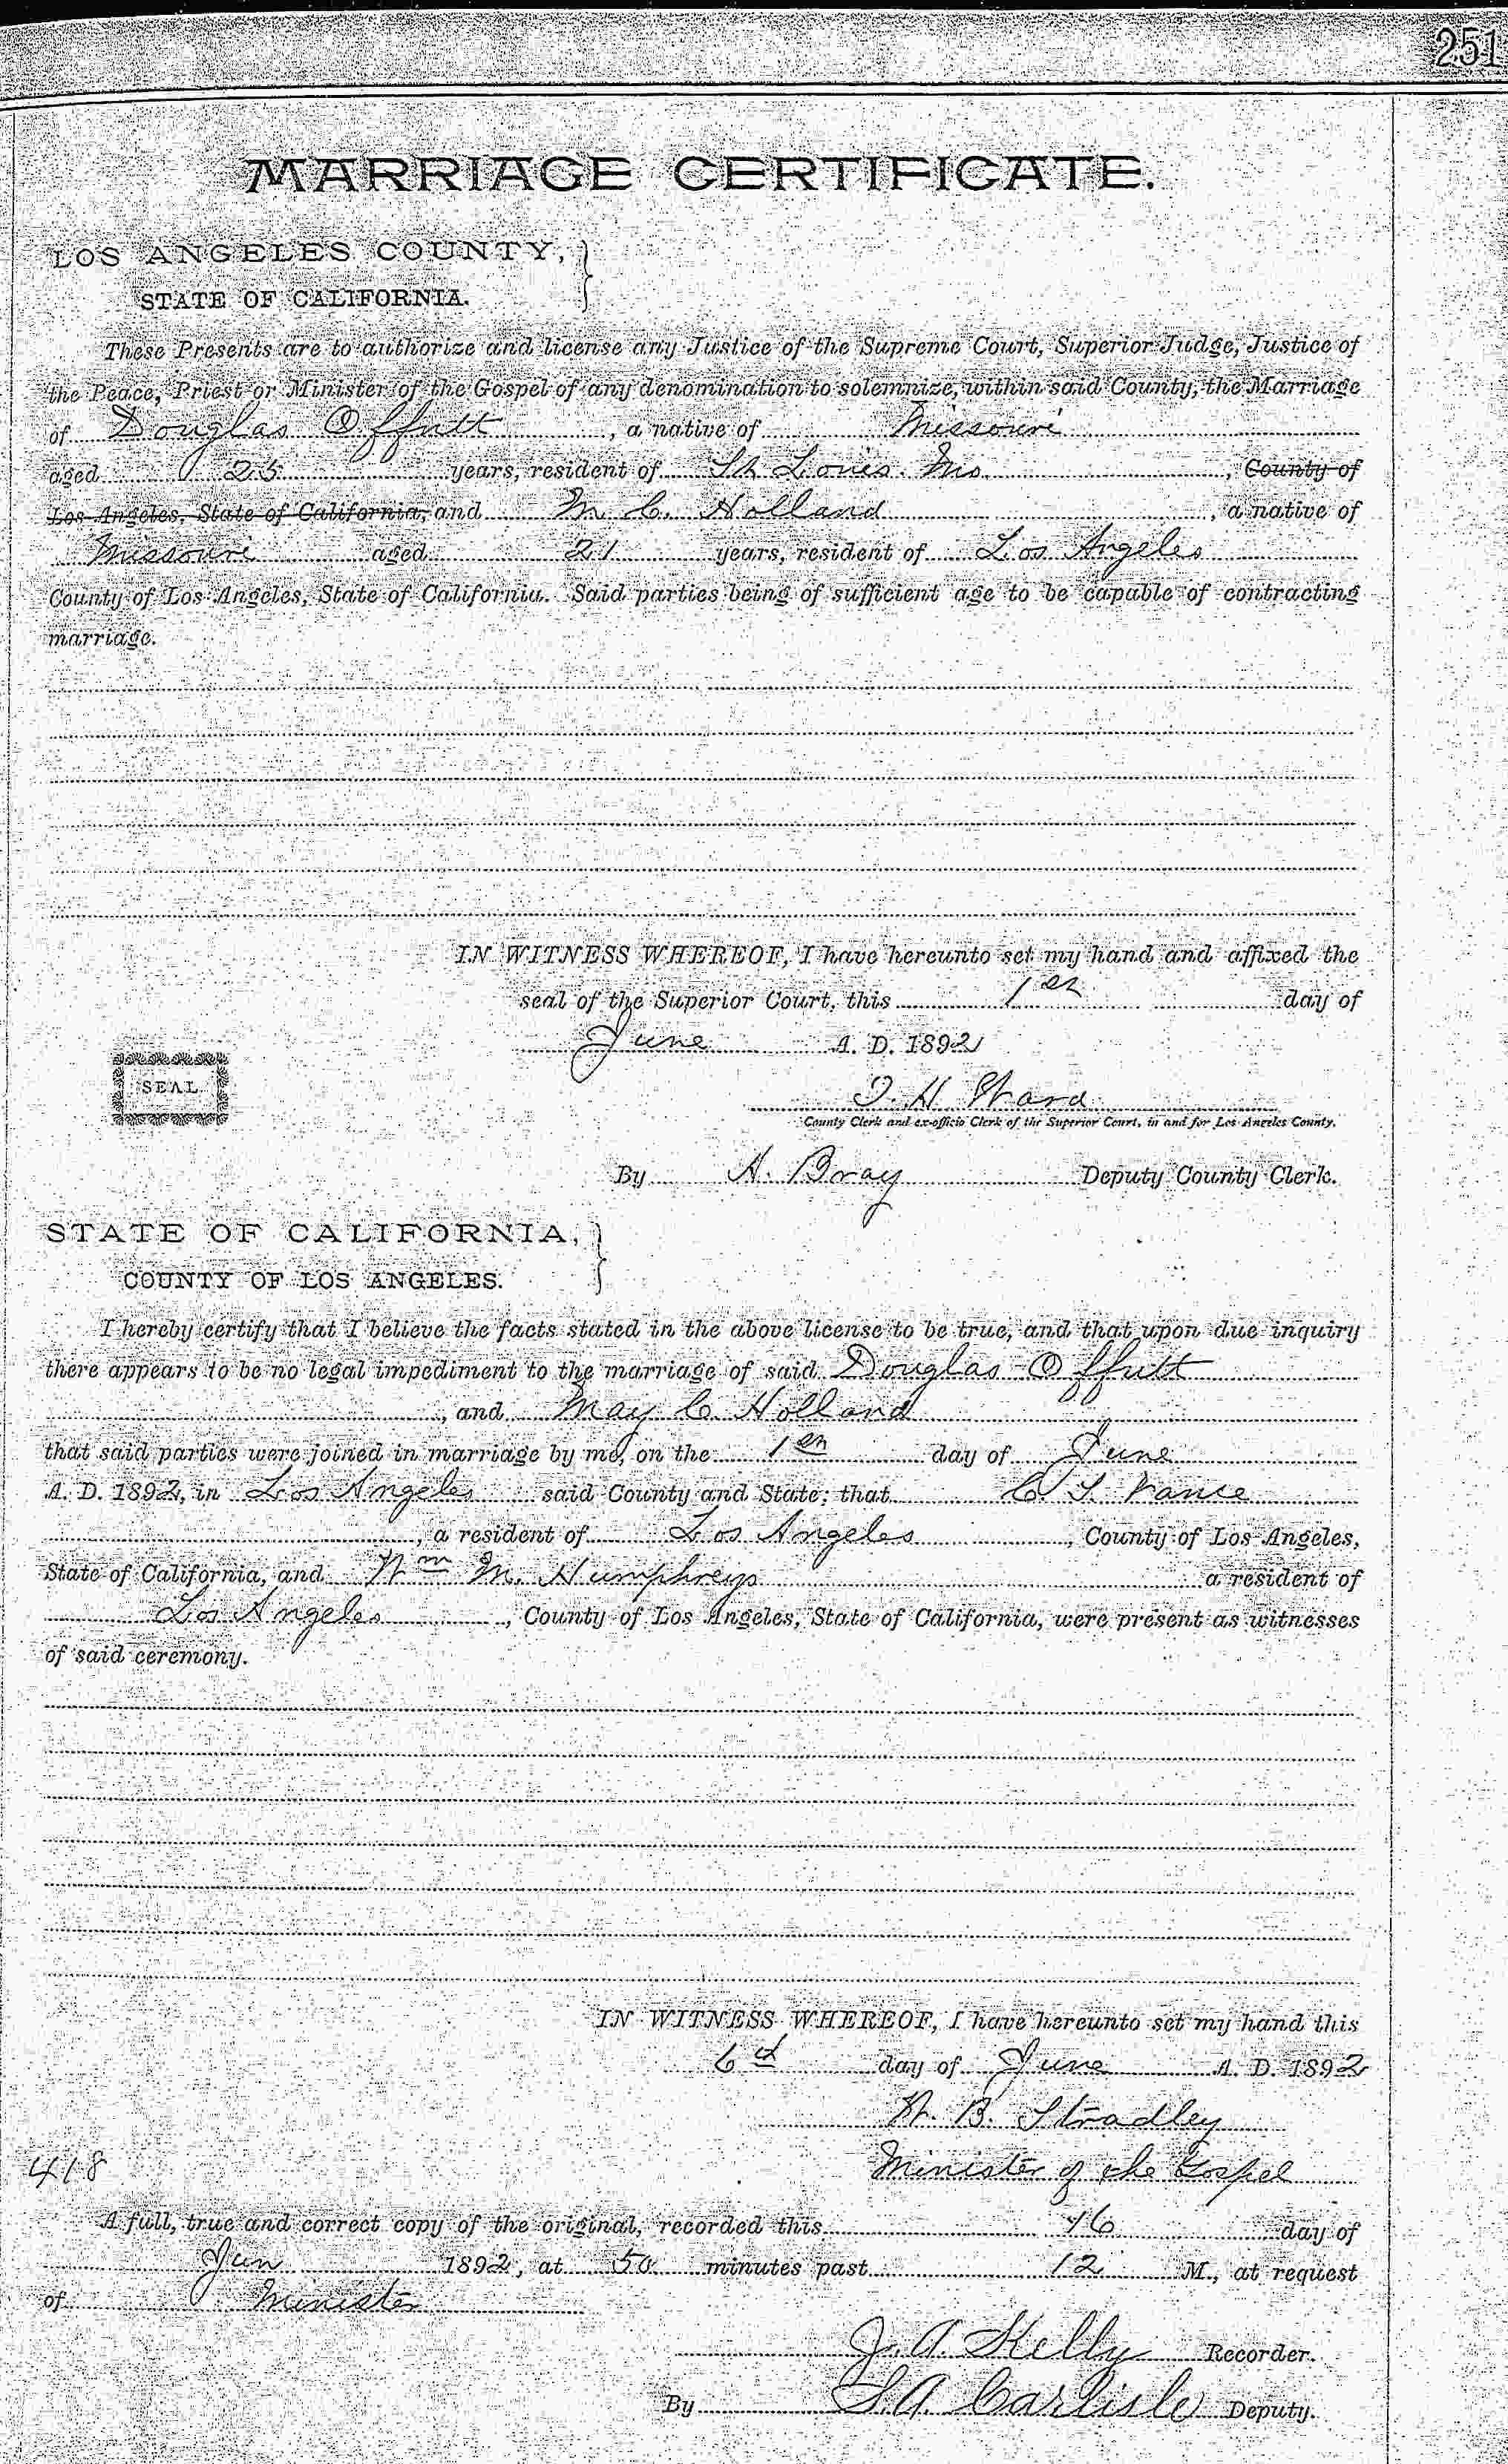 251
MARRIAGE CERTIFICATE.
LOS ANGELES COUNTY,
STATE OF CALIFORNIA.
These Presents are to authorize and license any Justice of the Supreme Court, Superior Judge, Justice of
the Peace, Priest or Minister of the Gospel of any denomination to solemnize, within said County, the Marriage
of Douglas Offutt, a native of Missouri
aged 25 years, resident of St Louis. Mo., County of
Los Angeles, State of California, and M. C. Holland, a native of
Missouri aged 21 years, resident of Los Angeles
County of Los Angeles, State of California. Said parties being of sufficient age to be capable of contracting
marriage.
IN WITNESS WHEREOF, I have hereunto set my hand and affixed the
seal of the Superior Court, this 1st day of
June A. D. 1892
SEAL
T. H. Ward
County Clerk and ex-officio Clerk of the Superior Court, in and for Los Angeles County.
By A. Bray Deputy County Clerk.
STATE OF CALIFORNIA,
COUNTY OF LOS ANGELES.
I hereby certify that I believe the facts stated in the above license to be true, and that upon due inquiry
there appears to be no legal impediment to the marriage of said Douglas Offutt
, and May C. Holland
that said parties were joined in marriage by me, on the 1st day of June
A. D. 1892, in Los Angeles said County and State; that C. S. Vance
, a resident of Los Angeles, County of Los Angeles,
State of California, and Wm M. Humphreys a resident of
Los Angeles, County of Los Angeles, State of California, were present as witnesses
of said ceremony.
IN WITNESS WHEREOF, I have hereunto set my hand this
6th day of June A. D. 1892
W. B. Stradley
418
Minister of the Gospel
A full, true and correct copy of the original, recorded this 16 day of
Jun 1892, at 50 minutes past 12 M., at request
of Minister
J. A. Kelly Recorder.
By S. A. Carlisle Deputy.